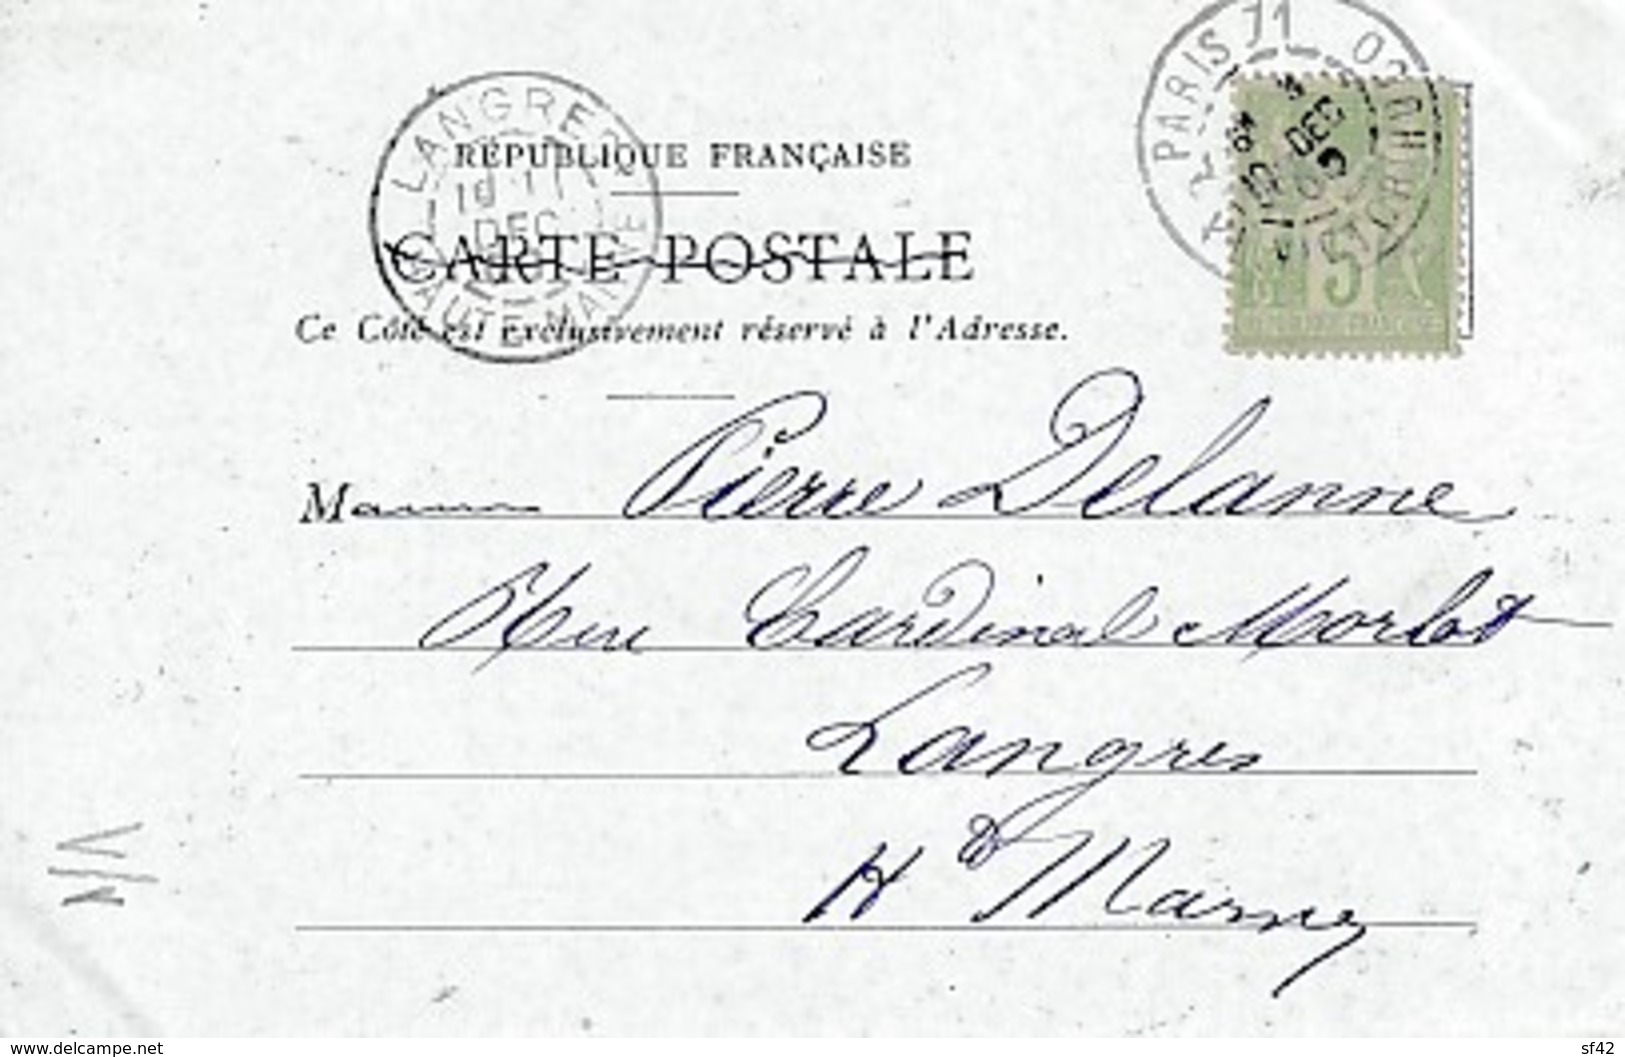 PARIS 71
LANGRES
RÉPUBLIQUE FRANÇAISE
DEC
CARTE POSTALE
HAUTE-MARNE
Ce Côté est exclusivement réservé à l'Adresse.
DEC
5
M Pierre Delanne
Rue Cardinal Morlot
Langres
Hte Marne
www.delcampe.net
sf42